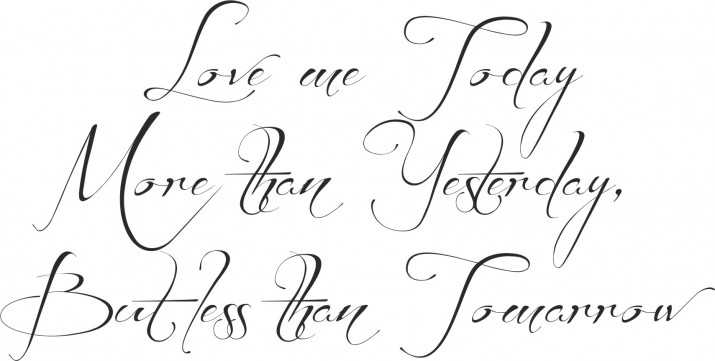 Love me Today
More than Yesterday,
But less than Tomarrow